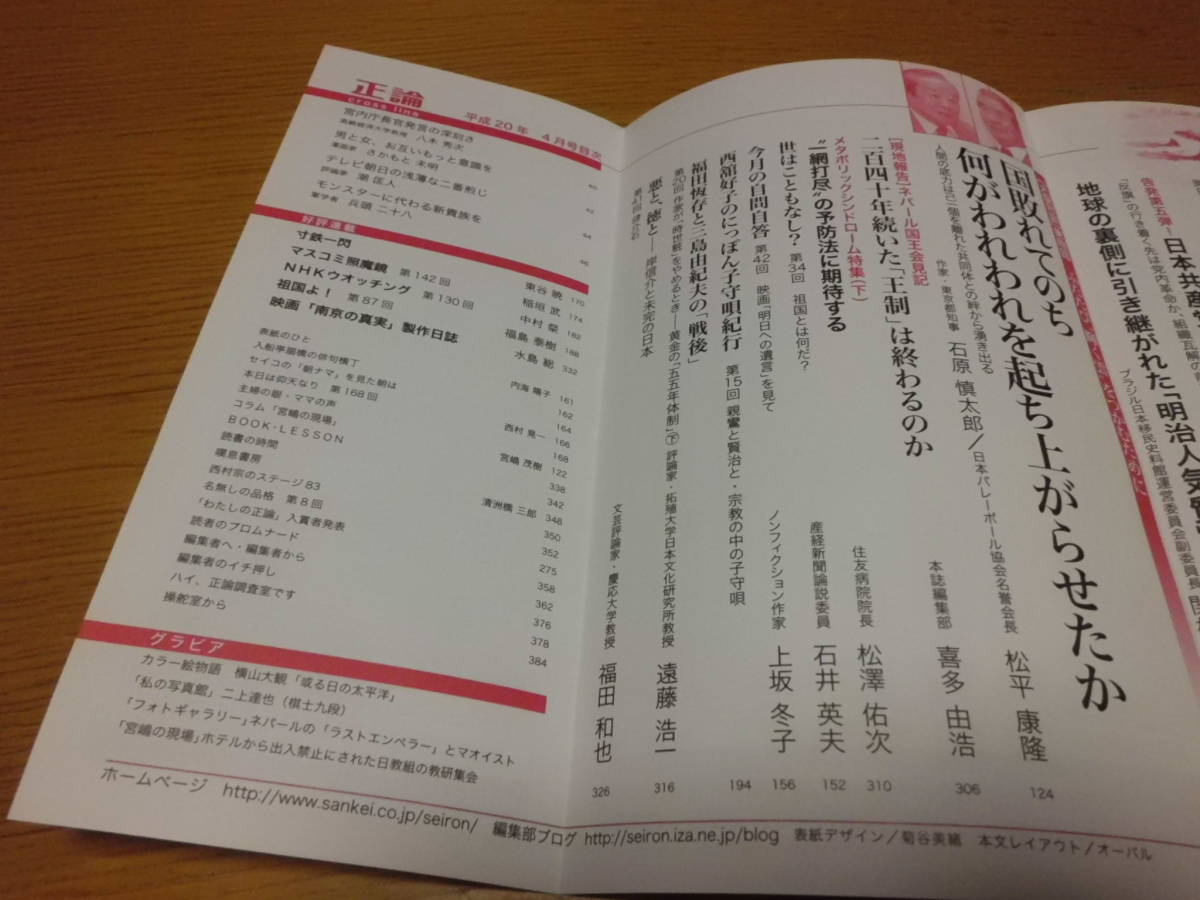 正論
cross line
平成20年 4月号目次
宮内庁長官発言の深刻さ
高崎経済大学教授 八木 秀次
男と女、お互いもっと意識を
漫画家 さかもと 未明
テレビ朝日の浅薄な二番煎じ
評論家 潮 匡人
モンスターに代わる新貴族を
軍学者 兵頭 二十八
好評連載
寸鉄一閃 東谷 暁 170
マスコミ照魔鏡 第142回 稲垣 武 174
NHKウオッチング 第130回 中村 粲 182
祖国よ! 第87回 福島 泰樹 188
映画「南京の真実」製作日誌 水島 総 332
表紙のひと 内海 陽子 161
入船亭扇橋の俳句横丁 162
セイコの「朝ナマ」を見た朝は 164
本日は仰天なり 第168回 西村 晃一 166
主婦の眼・ママの声 168
コラム「宮嶋の現場」 宮嶋 茂樹 122
BOOK・LESSON 338
読書の時間 342
嘆息書房 清洲橋 三郎 348
西村宗のステージ83 350
名無しの品格 第8回 352
「わたしの正論」入賞者発表 275
読者のプロムナード 358
編集者へ・編集者から 362
編集者のイチ押し 376
ハイ、正論調査室です 378
操舵室から 384
グラビア
カラー絵物語 横山大観「或る日の太平洋」
「私の写真館」二上達也(棋士九段)
「フォトギャラリー」ネパールの「ラストエンペラー」とマオイスト
「宮嶋の現場」ホテルから出入禁止にされた日教組の教研集会
ホームページ http://www.sankei.co.jp/seiron/ 編集部ブログ http://seiron.iza.ne.jp/blog 表紙デザイン/菊谷美緒 本文レイアウト/オーバル
告発第五弾
日本共産
「反旗」の行き着く先は党内革命か、組織瓦解の
地球の裏側に引き継がれた「明治人気質」
ブラジル日本移民史料館運営委員会副委員長
国敗れてのち
何がわれわれを起ち上がらせたか
人間の底力は己一個を離れた共同体との絆から湧き出る
作家・東京都知事 石原 慎太郎/日本バレーボール協会名誉会長 松平 康隆 124
[現地報告]ネパール国王会見記
二百四十年続いた「王制」は終わるのか
本誌編集部 喜多 由浩 306
メタボリックシンドローム特集(下)
“一網打尽”の予防法に期待する
住友病院院長 松澤 佑次 310
世はこともなし? 第34回 祖国とは何だ?
産経新聞論説委員 石井 英夫 152
今月の自問自答 第42回 映画「明日への遺言」を見て
ノンフィクション作家 上坂 冬子 156
西舘好子のにっぽん子守唄紀行 第15回 親鸞と賢治と・宗教の中の子守唄 194
福田恆存と三島由紀夫の「戦後」
第20回 作家が「時世粧」をやめるとき──黄金の「五五年体制」(下) 評論家・拓殖大学日本文化研究所教授 遠藤 浩一 316
悪と、徳と──岸信介と未完の日本
文芸評論家・慶応大学教授 福田 和也 326